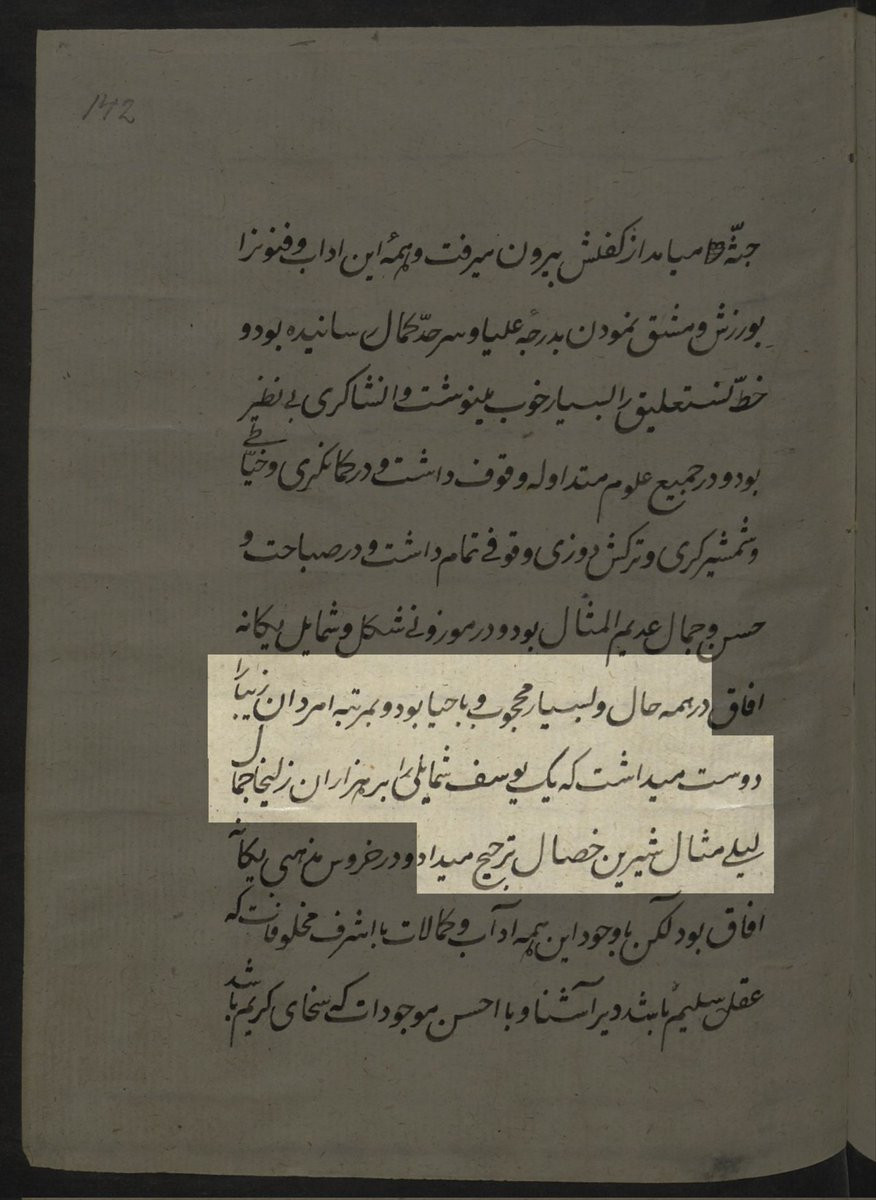 142
جثّه میامد از کفلش بیرون میرفت و همهٔ این اداب و فنونرا
بورزش و مشق نمودن بدرجهٔ علیا و سرحدّ کمال رسانیده بود و
خطّ نستعلیق را بسیار خوب مینوشت و انشاکری بی نظیر
بود و در جمیع علوم متداوله وقوف داشت و در کمانکری و خیّاطی
و شمشیرکری و ترکش دوزی وقوفی تمام داشت و در صباحت و
حسن و جمال عدیم المثال بود و در موزونی شکل و شمایل یکانه
افاق در همه حال و بسیار محجوب و با حیا بود و بمرتبه امردان زیبا را
دوست میداشت که یک یوسف شمایلی را بر هزاران زلیخا جمال
لیلی مثال شیرین خصال ترجیح میداد و در خروس مذهبی یکانه
افاق بود لکن با وجود این همه اداب و کمالات با اشرف مخلوقات که
عقل سلیم باشد دیر آشنا و با احسن موجودات که سخای کریم باشد